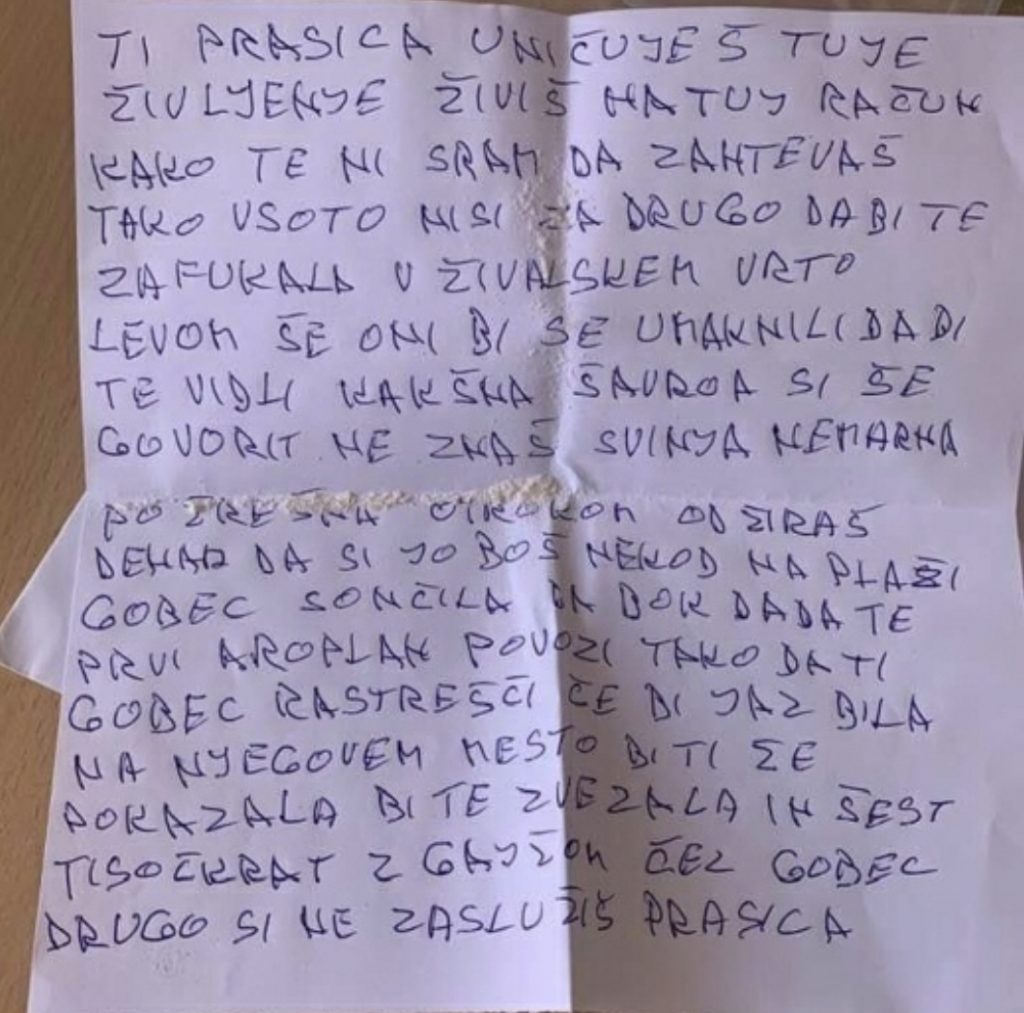 TI PRASICA UNIČUYEŠ TUYE
ŽIVLYENYE ŽIVIŠ NA TUY RAČUN
KAKO TE NI SRAM DA ZAHTEVAŠ
TAKO VSOTO NISI ZA DRUGO DA BI TE
ZAFUKALA V ŽIVALSKEM VRTO
LEVOM ŠE ONI BI SE UMAKNILI DA BI
TE VIDLI KAKŠNA ŠAVROA SI ŠE
GOVORIT NE ZNAŠ SVINYA NEMARNA
POŽREŠNA OTROKOM ODŽIRAŠ
DENAR DA SI JO BOŠ NEKOD NA PLAŽI
GOBEC SONČILA BOK DA DA TE
PRVI AROPLAN POVOZI TAKO DA TI
GOBEC RASTREŠČI ČE BI JAZ BILA
NA NYEGOVEM MESTO BI TI ŽE
POKAZALA BI TE ZVEZALA IN ŠEST
TISOČKRAT Z GAYŽOM ČEZ GOBEC
DRUGO SI NE ZASLUŽIŠ PRASICA